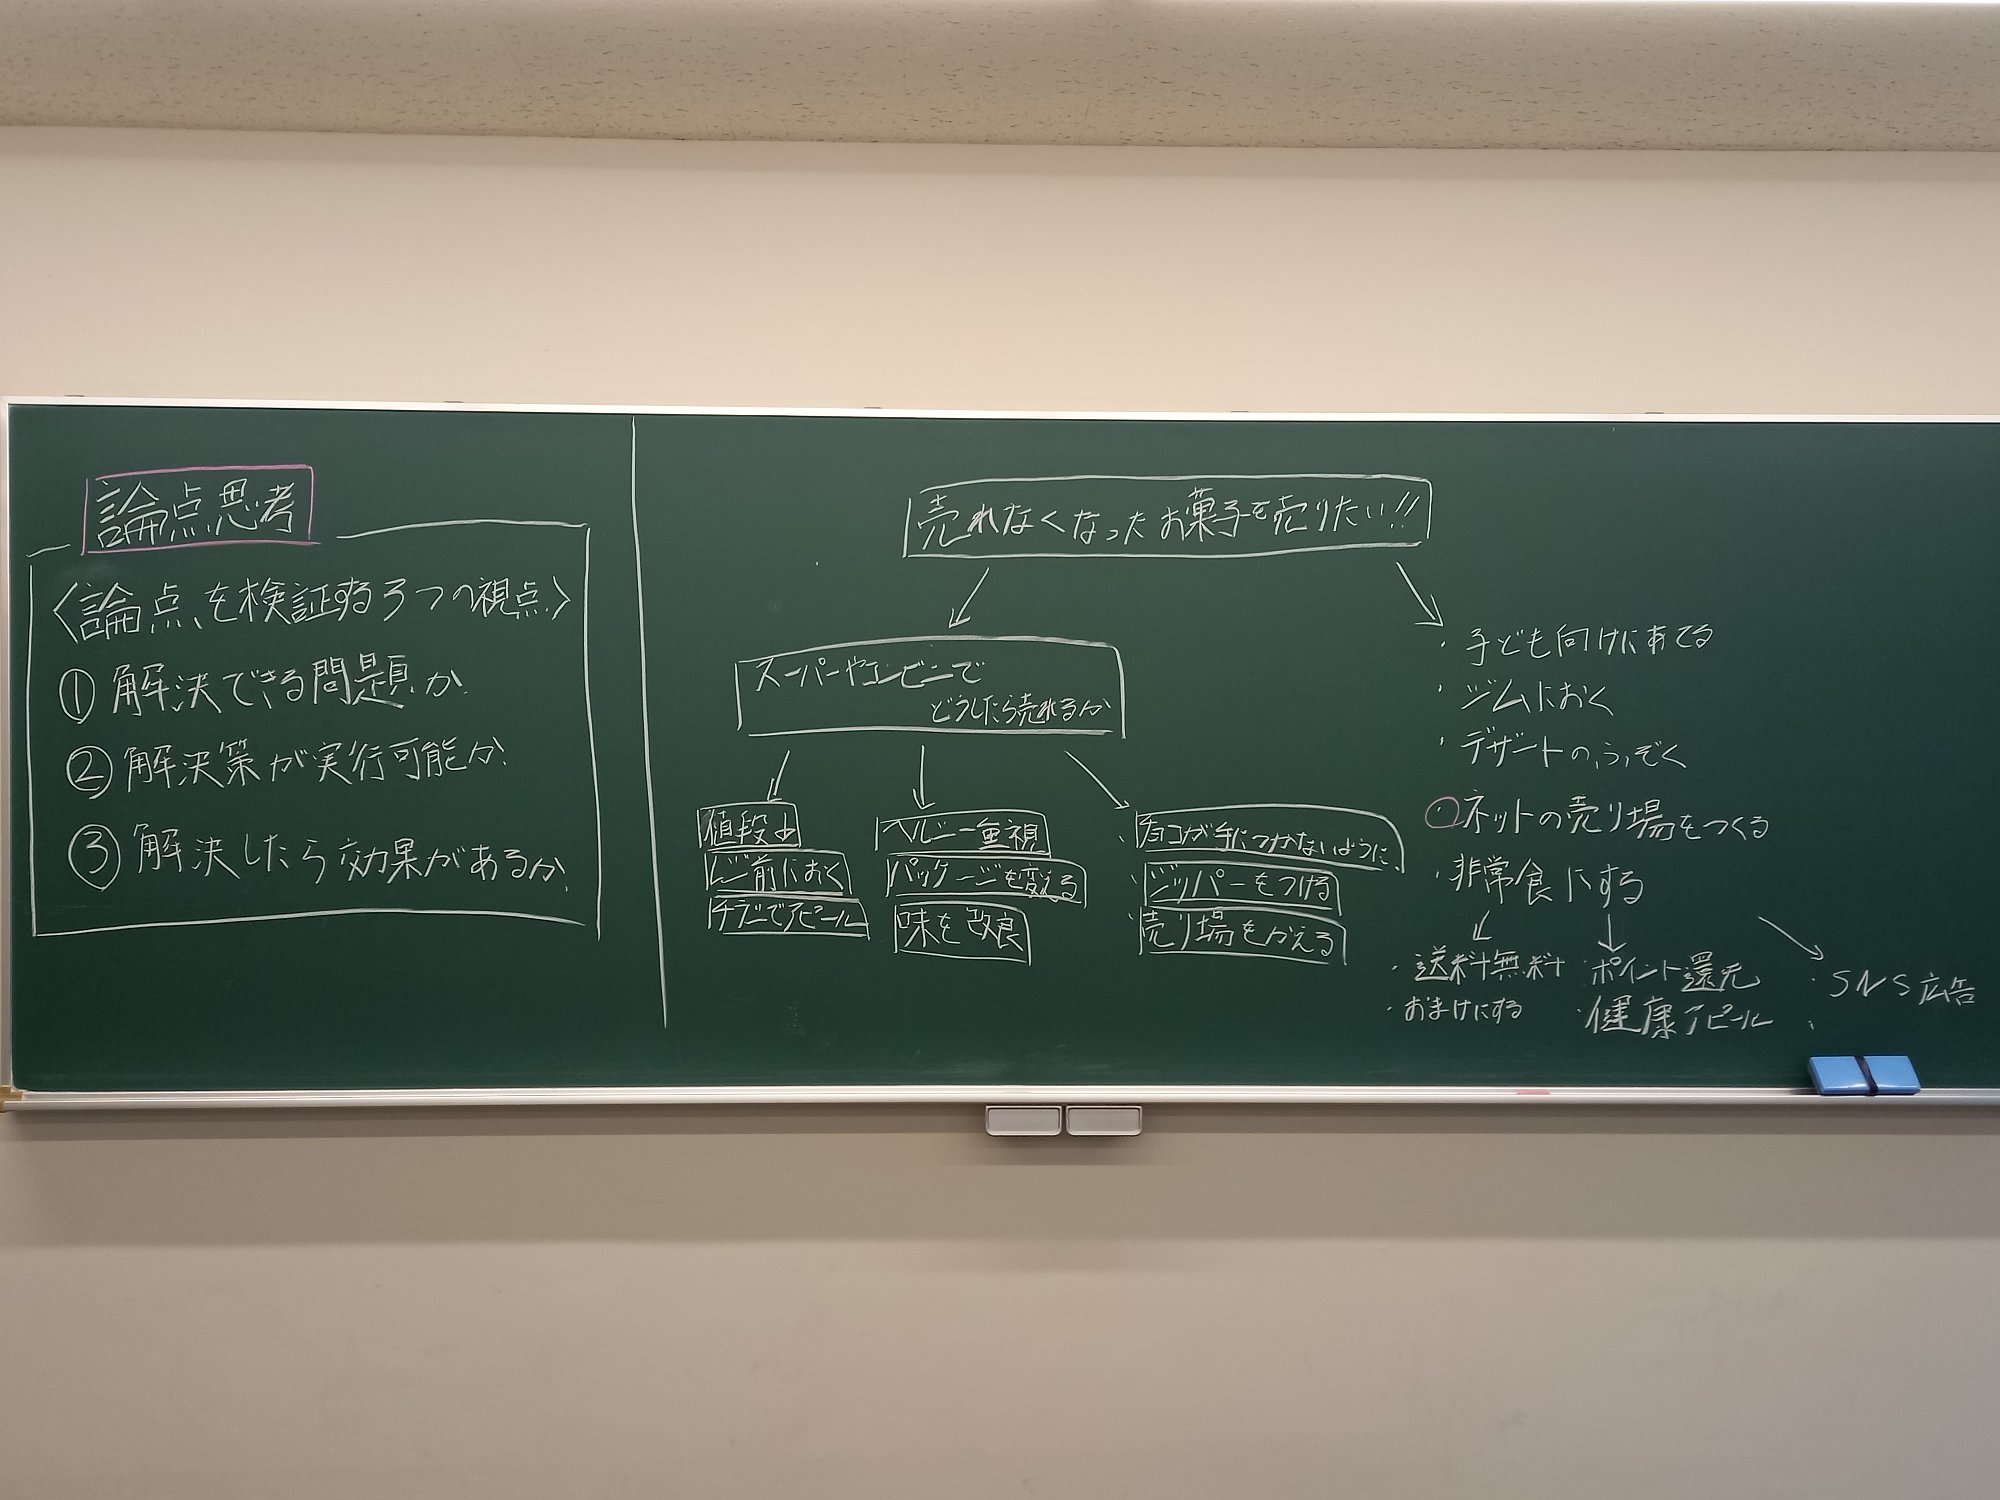 論点思考
〈論点を検証する3つの視点〉
① 解決できる問題か
② 解決策が実行可能か
③ 解決したら効果があるか
売れなくなったお菓子を売りたい!!
スーパーやコンビニで
どうしたら売れるか
値段↓
レジ前におく
チラシでアピール
ヘルシー重視
パッケージを変える
味を改良
・チョコが手につかないように
・ジッパーをつける
・売り場をかえる
・子ども向けにあてる
・ジムにおく
・デザートのふぞく
・ネットの売り場をつくる
・非常食にする
・送料無料
・おまけにする
・ポイント還元
・健康アピール
・SNS広告